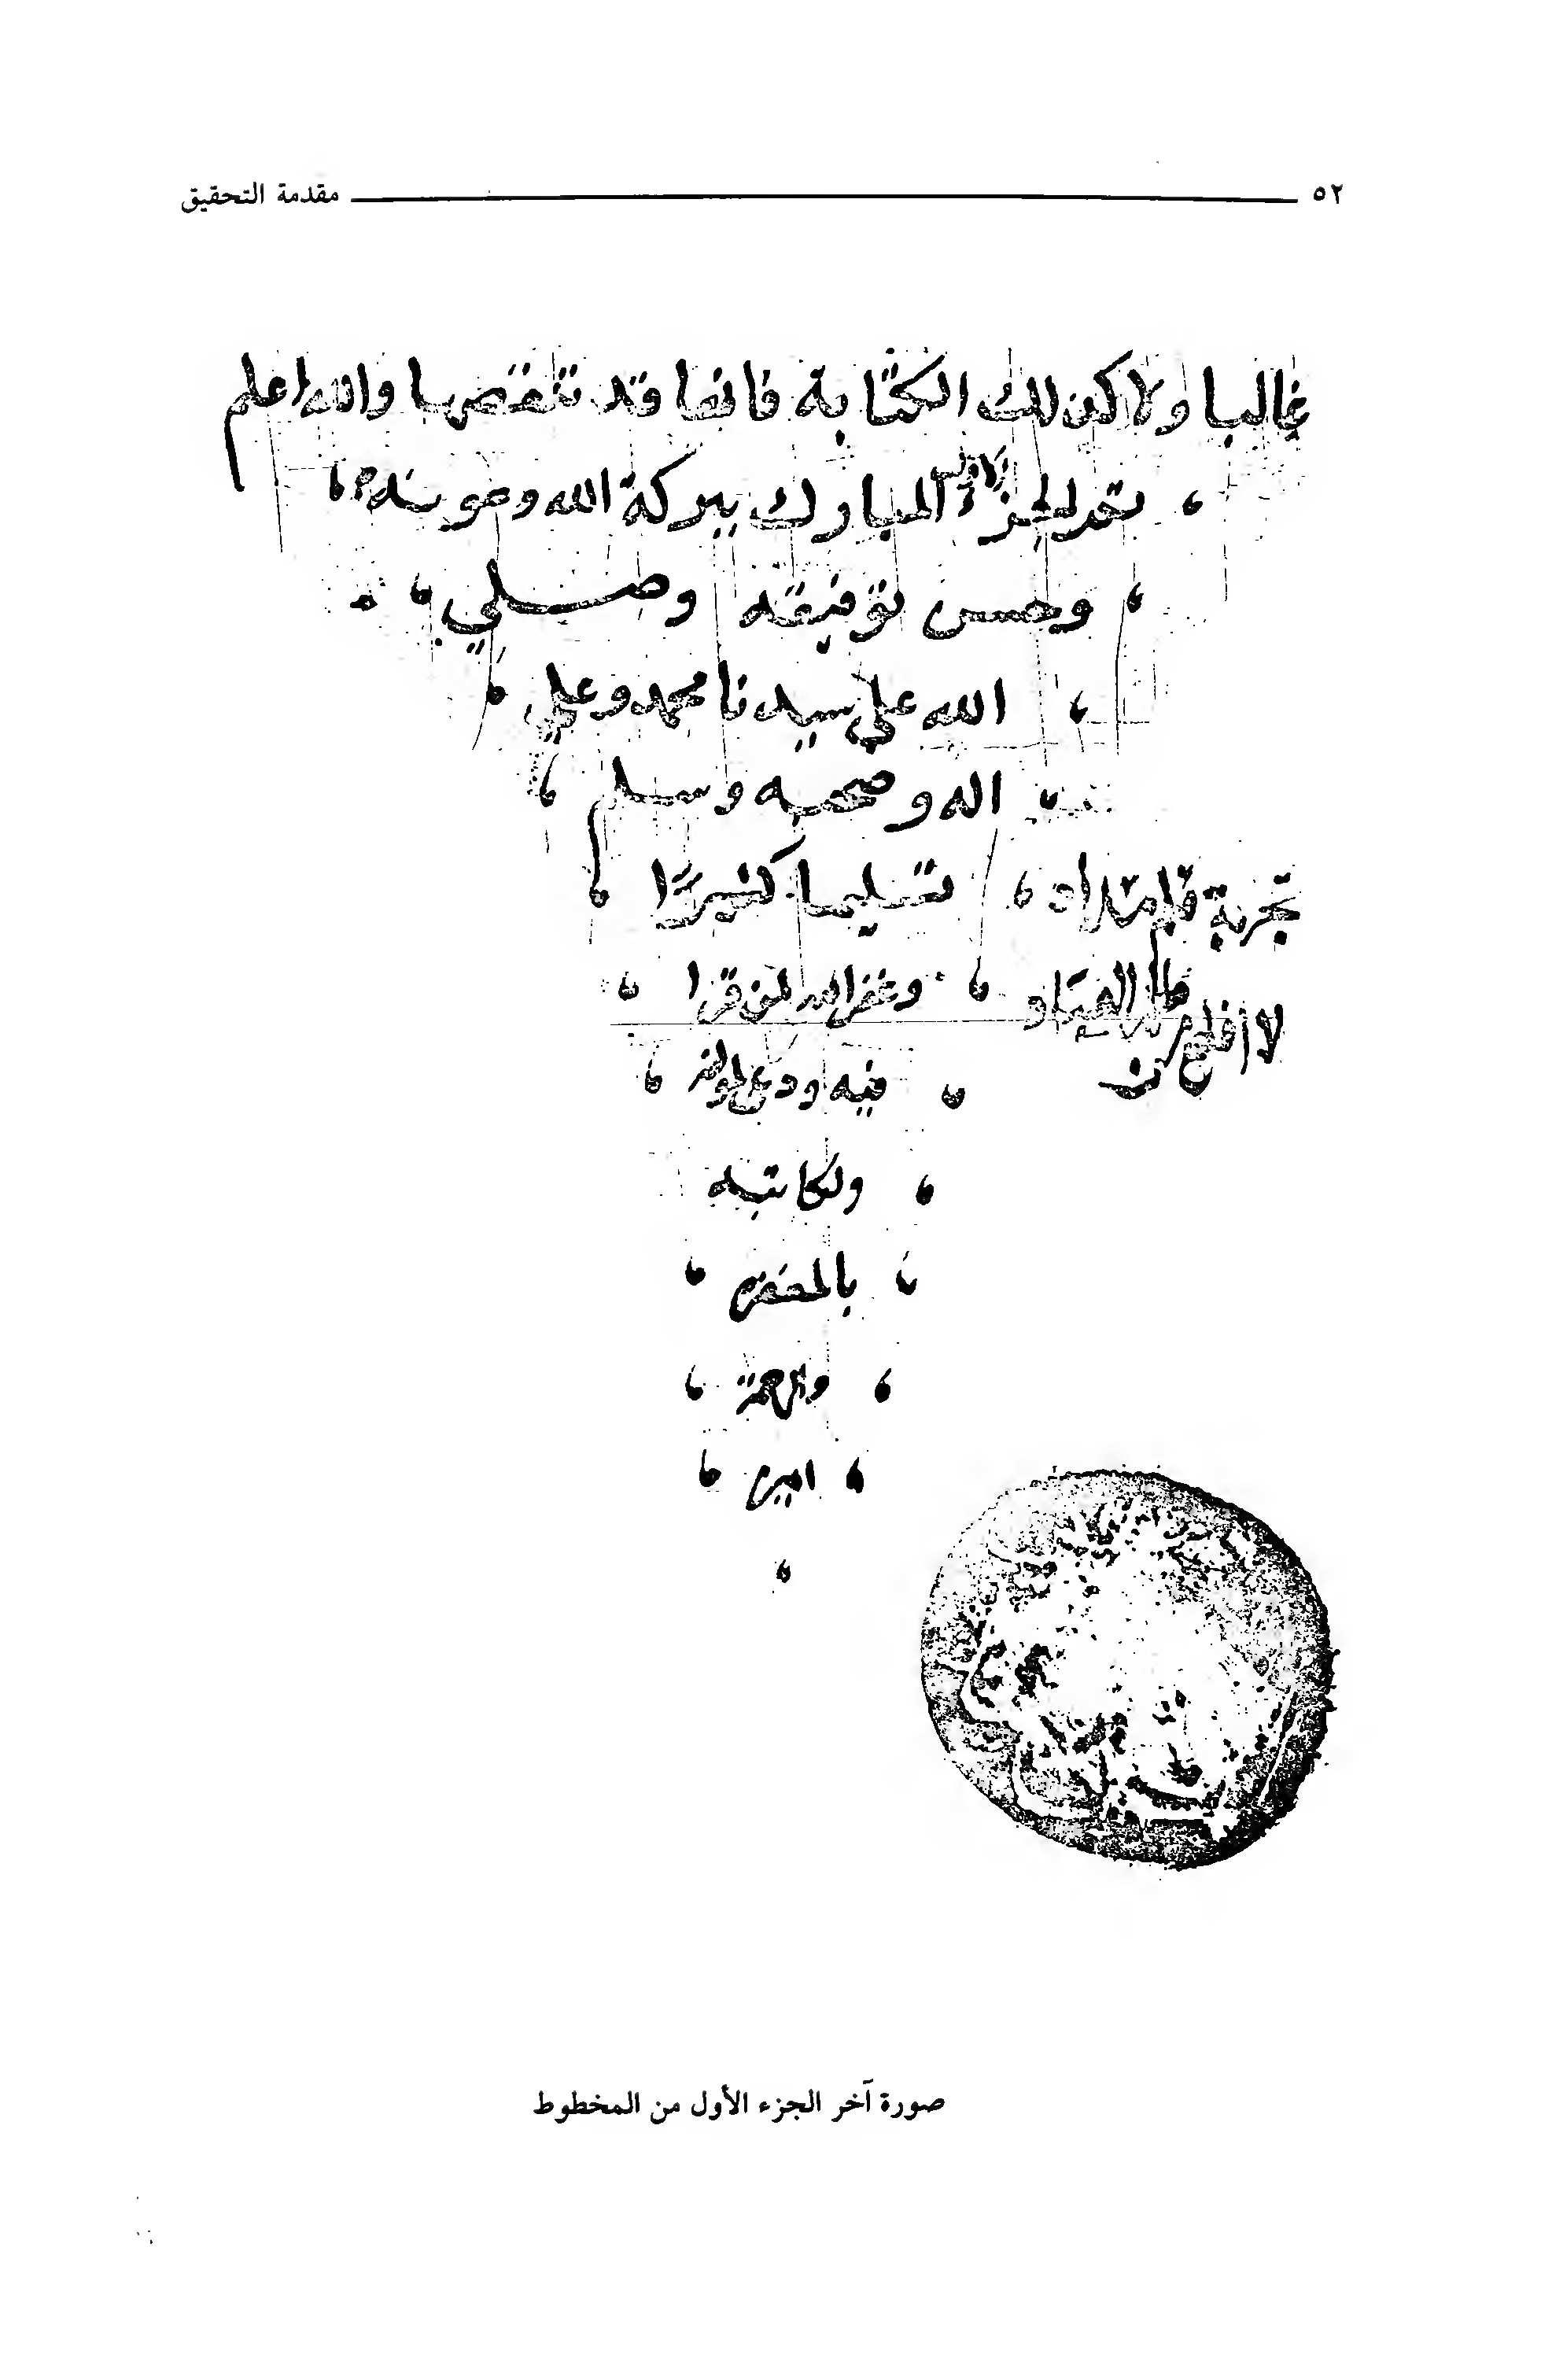 ٥٢ مقدمة التحقيق
غالبا ولا كذلك الكتابة فانها قد تنقصها والله اعلم
، تم الجزء الاول المبارك ببركة الله وعونه ،
، وحسن توفيقه وصلي ،
، الله علي سيدنا محمد وعلي ،
، اله وصحبه وسلم ،
، تسليما كثيرًا ،
، وغفر الله لمن قرا ،
، فيه ودعى لمولفه ،
، ولكاتبه
، بالمغفرة ،
، والرحمة ،
، امين ،
،
تجربة قلم
لا افلح من ظلم العباد
صورة آخر الجزء الأول من المخطوط